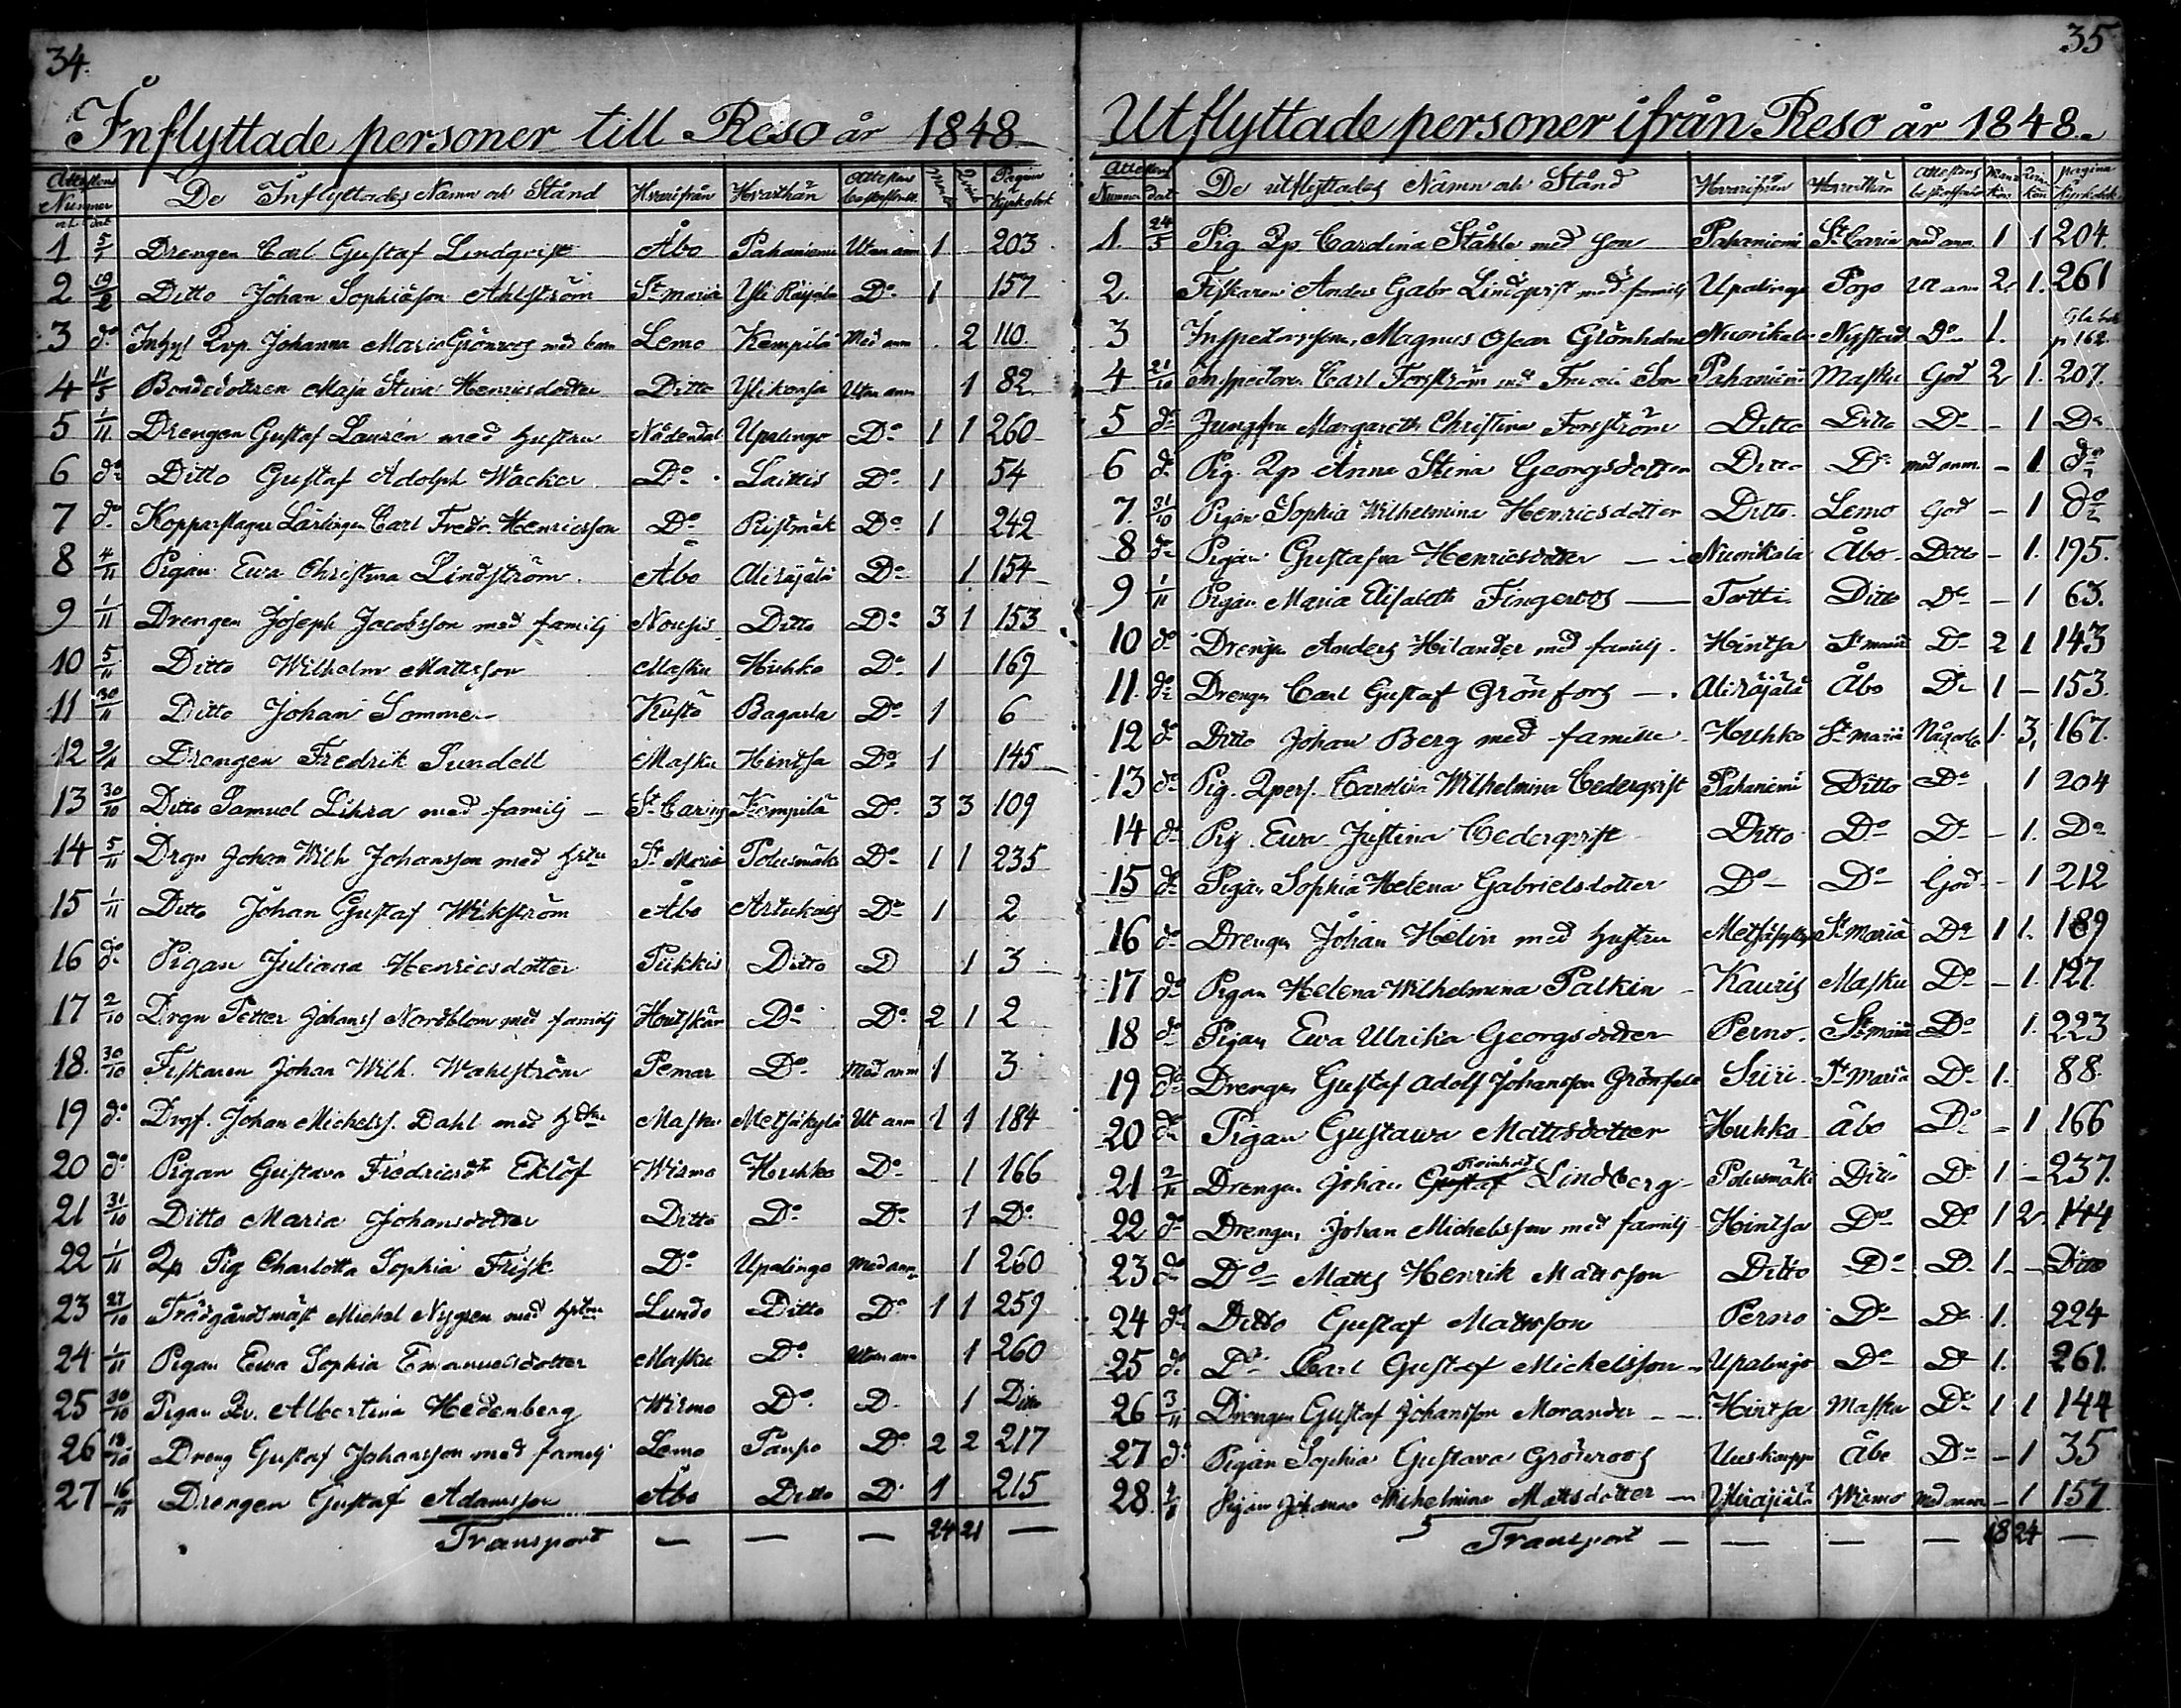 34.
Inflyttade personer till Reso år 1848
Attestens Nummer och dat De Inflyttades Namn och Stånd Hvarifrån Hvarthän Attestens Mank Qvink Pagina i Kyrkobok
1 5/1 Drengen Carl Gustaf Lindqvist Åbo Pahaniemi Utan anm 1 203
2 19/2 Ditto Johan Sophiäson Ahlström St Maria Yli Räjälä Do 1 157
3 do Inhys Qvp. Johanna Maria Grönroos med barn Lemo Kempilä Med anm 2 110.
4 11/5 Bondedottren Maja Stina Henricsdotter Ditto Ylikonsa Utan anm 1 82
5 1/11 Drengen Gustaf Laurén med hustru Nådendal Upalingo Do 1 1 260
6 do Ditto Gustaf Adolph Wacker Do Laittis Do 1 54
7 do Kopparslagar Lärlingen Carl Fredr. Henricsson Do Ristmäk Do 1 242
8 4/11 Pigan Ewa Christina Lindström Åbo Aliräjälä Do 1 154
9 1/11 Drengen Joseph Jacobsson med familj Nousis Ditto Do 3 1 153
10 5/11 Ditto Wilhelm Mattsson Masku Huhko Do 1 169
11 30/11 Ditto Johan Sommer Kustö Bagarla Do 1 6
12 2/11 Drengen Fredrik Sundell Masku Hintsa Do 1 145
13 30/10 Ditto Samuel Lihra med familj St Carins Kempilä Do 3 3 109
14 5/11 Drgn Johan Wilh Johansson med hstu St Maria Polusmäki Do 1 1 235
15 1/11 Ditto Johan Gustaf Wikström Åbo Artukais Do 1 2
16 do Pigan Juliana Henricsdotter Piikkis Ditto D 1 3
17 2/10 Drgn Petter Johanss Nordblom med familj Houtskär Do Do 2 1 2
18. 30/10 Fiskaren Johan Wilh. Wahlström Pemar Do Med anm 1 3
19 do Johan Michelss. Dahl med Masku Metsäkylä Ut anm 1 1 184
20 do Pigan Gustava Fredricsdr Eklöf Wirmo Huhko Do 1 166
21 31/10 Ditto Maria Johansdotter Ditto Do Do 1 Do
22 1/11 Qp Pig Charlotta Sophia Frisk Do Upalingo Med anm 1 260
23 27/10 Trädgårdsmäst Michel Nygren med hstru Lundo Ditto Do 1 1 259
24 1/11 Pigan Ewa Sophia Emanuelsdotter Masku Do Utan an 1 260
25 30/10 Pigan Qv. Albertina Hedenberg Wirmo Do D 1 Ditto
26 18/10 Dreng Gustaf Johansson med familj Lemo Panpo Do 2 2 217
27 16/11 Drengen Gustaf Adamsson Åbo Ditto D 1 215
Transport — — — 24 21 —
35
Utflyttade personer ifrån Reso år 1848.
Attestens Nummer dat De utflyttades Namn och Stånd Hvarifrån Hvarthän Attestens beskaffenhet Mankön Qvinkön pagina i Kyrkobok
1. 24/5 Pig Qp. Carolina Ståhle med son Pahaniemi St Carin med anm 1 1 204.
2. Fiskaren Anders Gabr Lindqvist med familj Upalingo Pojo Ut anm 2. 1. 261
3 Inspectorssonen, Magnus Oscar Grönholm Nuorikala Nystad Do 1. p 162
4 21/10 Inspectoren Carl Forsström med Fru och Son Pahaniemi Masku God 2 1. 207.
5 do Jungfru Margareth Christina Forsström Ditto Ditto Do - 1 Do
6 do Pig. Qp Anna Stina Georgsdotter Ditto Do med anm. - 1 do
7. 31/10 Pigan Sophia Wilhelmina Henricsdotter Ditto. Lemo God - 1 do
8 do Pigan Gustafva Henricsdotter — Nuorikala Åbo Ditto - 1. 195.
9 1/11 Pigan Maria Elisabeth Fingerroos — Tortti Ditto Do - 1 63.
10 do Drengn Anders Hilander med familj. Hintsa St maria Do 2 1 143
11. do Drengn Carl Gustaf Grönfors — Aliräjälä Åbo Do 1 - 153.
12 do Ditto Johan Berg med familie Huhko St maria 1. 3. 167.
13 do Pig. Qpers. Carolina Wilhelmina Cederqvist Pahaniemi Ditto Do 1 204
14 do Pig. Ewa Justina Cederqvist Ditto Do Do - 1. Do
15 do Pigan Sophia Helena Gabrielsdotter Do Do God - 1 212
16 do Drengn Johan Helin med hustru Metsäkylä St Maria Do 1 1. 189
17 do Pigan Helena Wilhelmina Palkin Kauris Masku Do - 1. 127.
18 do Pigan Ewa Ulrika Georgsdotter Perno. St maria Do 1. 223
19 do Drengen Gustaf Adolf Johansson Grönfelt Suri St Maria Do 1. 88.
20 do Pigan Gustawa Mattsdotter Huhko Åbo Do - 1 166
21 2/11 Drengn Johan Gustaf Reinhold Lindberg Polusmäki Ditto Do 1. - 237.
22 do Drengn Johan Michelsson med familj Hintsa Do Do 1 2 144
23 do Do Matts Henrik Mattsson Ditto Do D 1. - Ditto
24 do Ditto Gustaf Mattsson Perno Do Do 1. 224
25 do Do Carl Gustaf Michelsson Upalingo Do D 1. 261.
26 3/11 Drengen Gustaf Johansson Morander Hintsa Masku Do 1 1 144
27 do Pigan Sophia Gustava Grönroos Åbo Do - 1 35
28. Pigan Johanna Wilhelmina Mattsdotter Yliräjälä Wirmo Med anm - 1 157
Transport — — — — 18 24 —